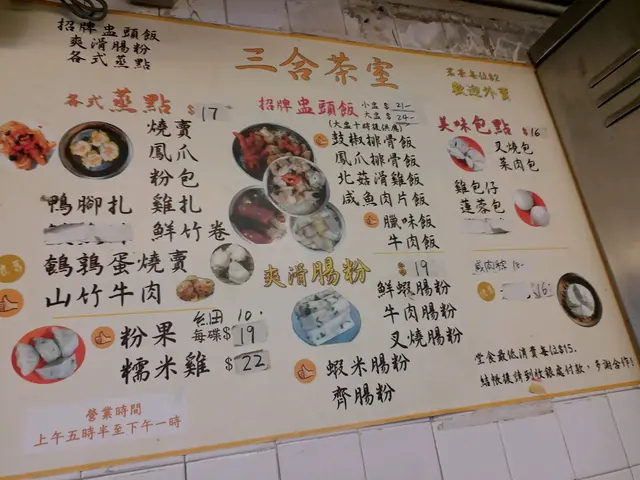 招牌盅頭飯
爽滑腸粉
各式蒸點
三合茶室
茗茶每位$2
歡迎外賣
各式蒸點 $17
燒賣
鳳爪
粉包
鴨腳扎 雞扎
鮮竹卷
鵪鶉蛋燒賣
山竹牛肉
粉果
每碟$19
糯米雞 $22
營業時間
上午五時半至下午一時
招牌盅頭飯 小盅$21-
大盅$24-
(大盅十時後供應)
豉椒排骨飯
鳳爪排骨飯
北菇滑雞飯
咸魚肉片飯
臘味飯
牛肉飯
爽滑腸粉 $19
鮮蝦腸粉
牛肉腸粉
叉燒腸粉
蝦米腸粉
齊腸粉
美味包點 $16
叉燒包
菜肉包
雞包仔
蓮蓉包
$16
堂食最低消費每位$15.
結帳後請到收銀處付款,多謝合作!